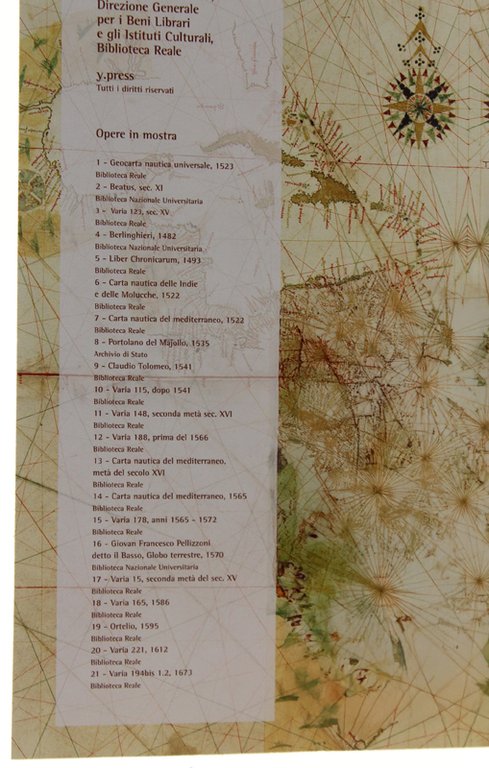 Direzione Generale
per i Beni Librari
e gli Istituti Culturali,
Biblioteca Reale
y.press
Tutti i diritti riservati
Opere in mostra
1 - Geocarta nautica universale, 1523
Biblioteca Reale
2 - Beatus, sec. XI
Biblioteca Nazionale Universitaria
3 - Varia 123, sec. XV
Biblioteca Reale
4 - Berlinghieri, 1482
Biblioteca Nazionale Universitaria
5 - Liber Chronicarum, 1493
Biblioteca Reale
6 - Carta nautica delle Indie
e delle Molucche, 1522
Biblioteca Reale
7 - Carta nautica del mediterraneo, 1522
Biblioteca Reale
8 - Portolano del Majollo, 1535
Archivio di Stato
9 - Claudio Tolomeo, 1541
Biblioteca Reale
10 - Varia 115, dopo 1541
Biblioteca Reale
11 - Varia 148, seconda metà sec. XVI
Biblioteca Reale
12 - Varia 188, prima del 1566
Biblioteca Reale
13 - Carta nautica del mediterraneo,
metà del secolo XVI
Biblioteca Reale
14 - Carta nautica del mediterraneo, 1565
Biblioteca Reale
15 - Varia 178, anni 1565 - 1572
Biblioteca Reale
16 - Giovan Francesco Pellizzoni
detto il Basso, Globo terrestre, 1570
Biblioteca Nazionale Universitaria
17 - Varia 15, seconda metà del sec. XV
Biblioteca Reale
18 - Varia 165, 1586
Biblioteca Reale
19 - Ortelio, 1595
Biblioteca Reale
20 - Varia 221, 1612
Biblioteca Reale
21 - Varia 194bis 1.2, 1673
Biblioteca Reale